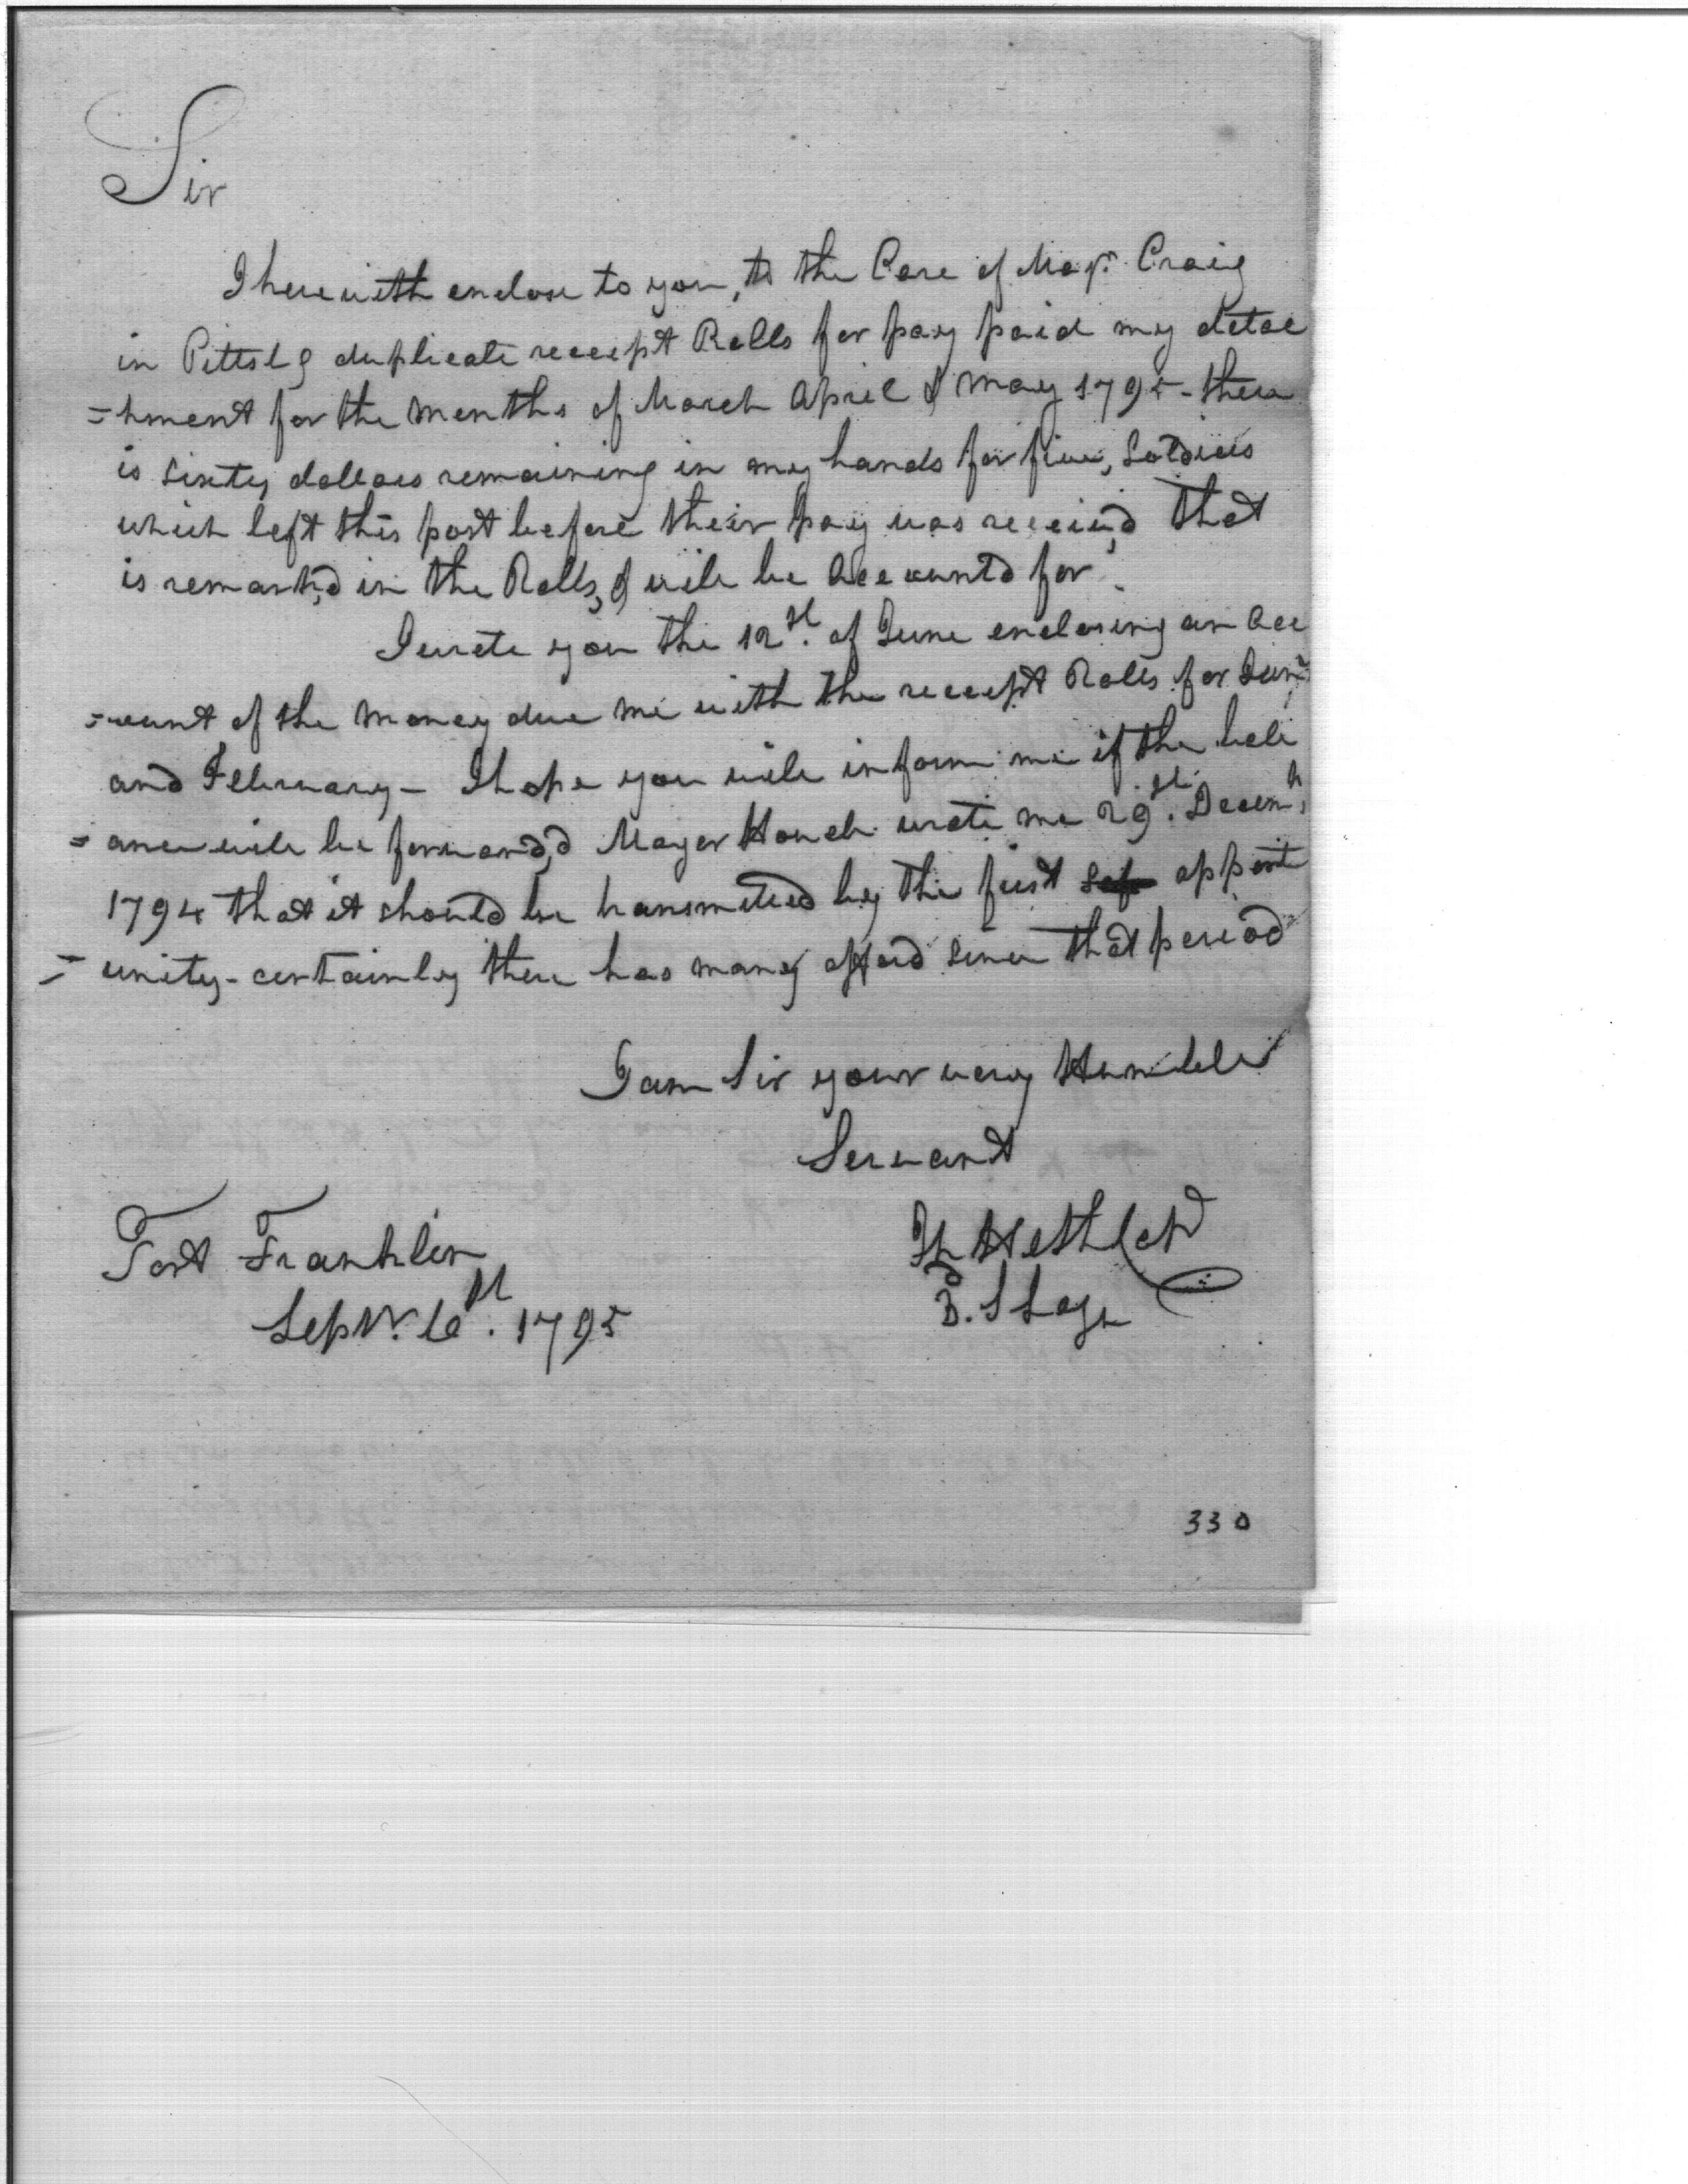 Sir
I herewith enclose to you, to the Care of Majr. Craig
in Pittsbg duplicate receipt Rolls for pay paid my detac
=hment for the Months of March April & May 1795 - there
is sixty dollars remaining in my hands for five, Soldiers
which left this post before their pay was receiv,d that
is remark,d in the Rolls, & will be Accountd for.
I wrote you the 12th. of June enclosing an Acc
=ount of the Money due me with the receipt Rolls for Jany
and February - I hope you will inform me if the ball
=ance will be forward,d Mayor Howell wrote me 29th. Decemb,
1794 that it should be transmitted by the first opport
=unity - certainly there has many offerd since that period
I am Sir your very Humble
Servant
Jn Heth Capt
3.d S Leg
Fort Franklin
Sepbr. 6th. 1795
330